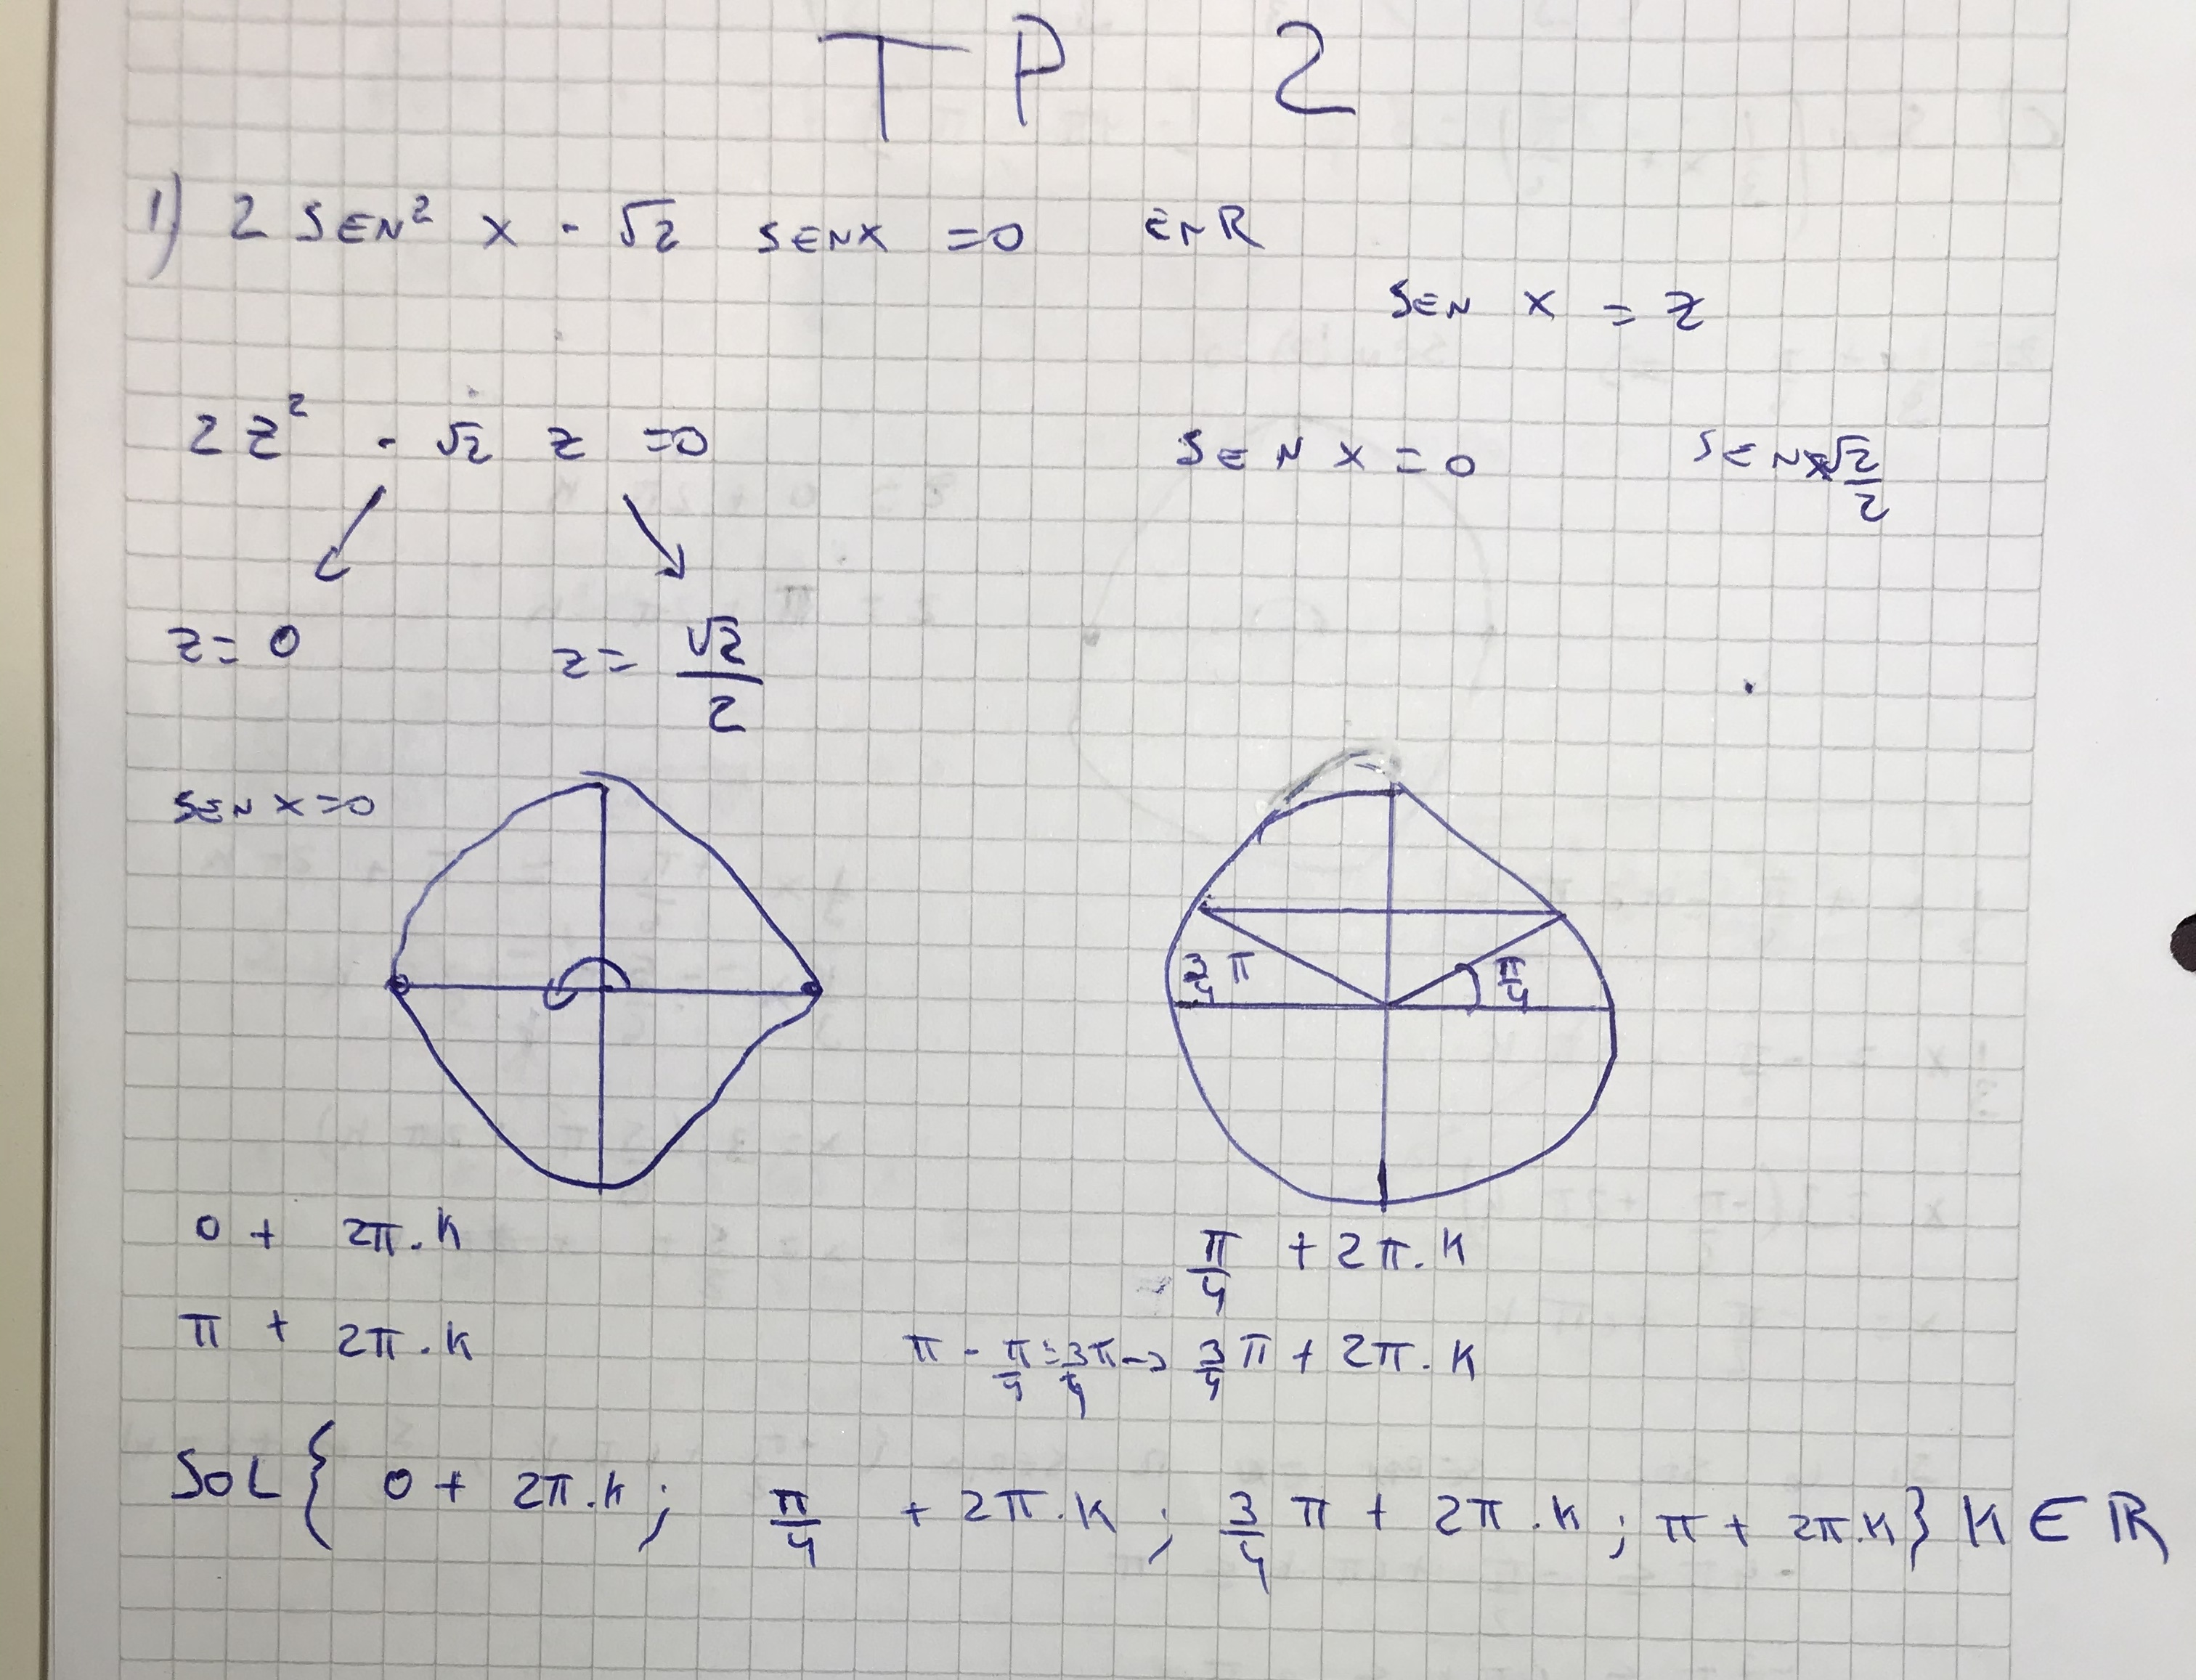 TP 2
1) 2 SEN² x - √2 SENX =0 EN R
SEN X = Z
2Z² - √2 Z =0 SEN X =0 SENX √2/2
Z= 0 Z= √2/2
SEN X =0
3/4 π π/4
0 + 2π.K π/4 + 2π.K
π + 2π.K π - π/4 = 3π/4 → 3/4 π + 2π.K
SOL { 0 + 2π.K ; π/4 + 2π.K ; 3/4 π + 2π.K ; π + 2π.K } K ∈ ℝ